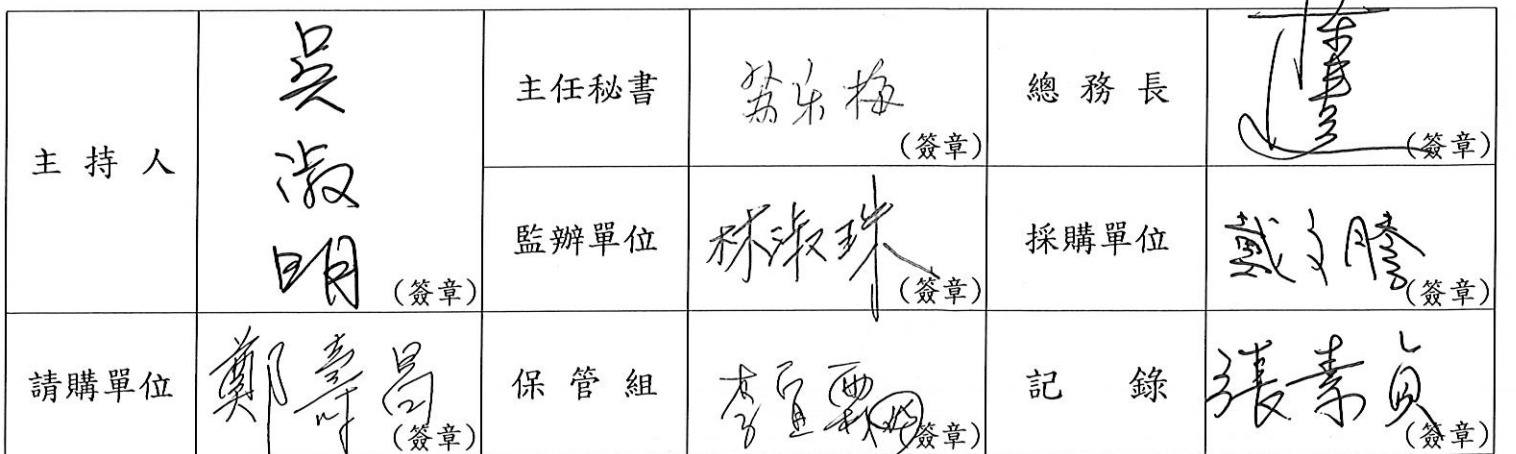 主持人 吳淑明 (簽章) 主任秘書 (簽章) 總務長 (簽章)
監辦單位 林淑珠 (簽章) 採購單位 戴文騰 (簽章)
請購單位 鄭壽昌 (簽章) 保管組 (簽章) 記錄 張素貞 (簽章)